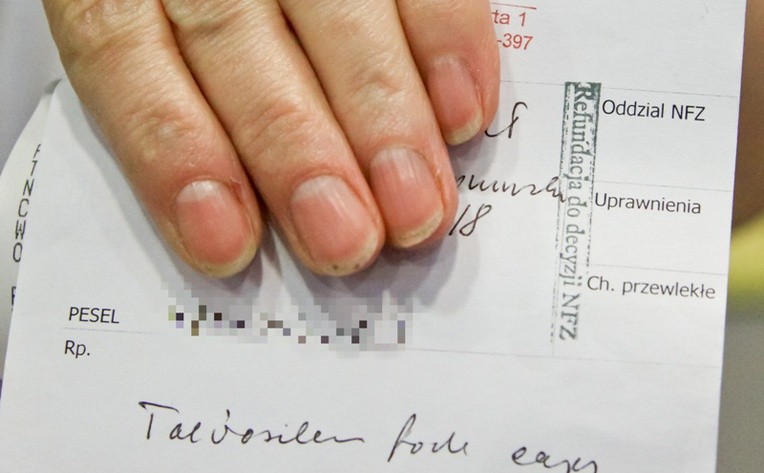 ta 1
-397
Oddzial NFZ
Refundacja do decyzji NFZ
Uprawnienia
18
Ch. przewlekłe
PESEL
Rp.
Talvosilen forte caps